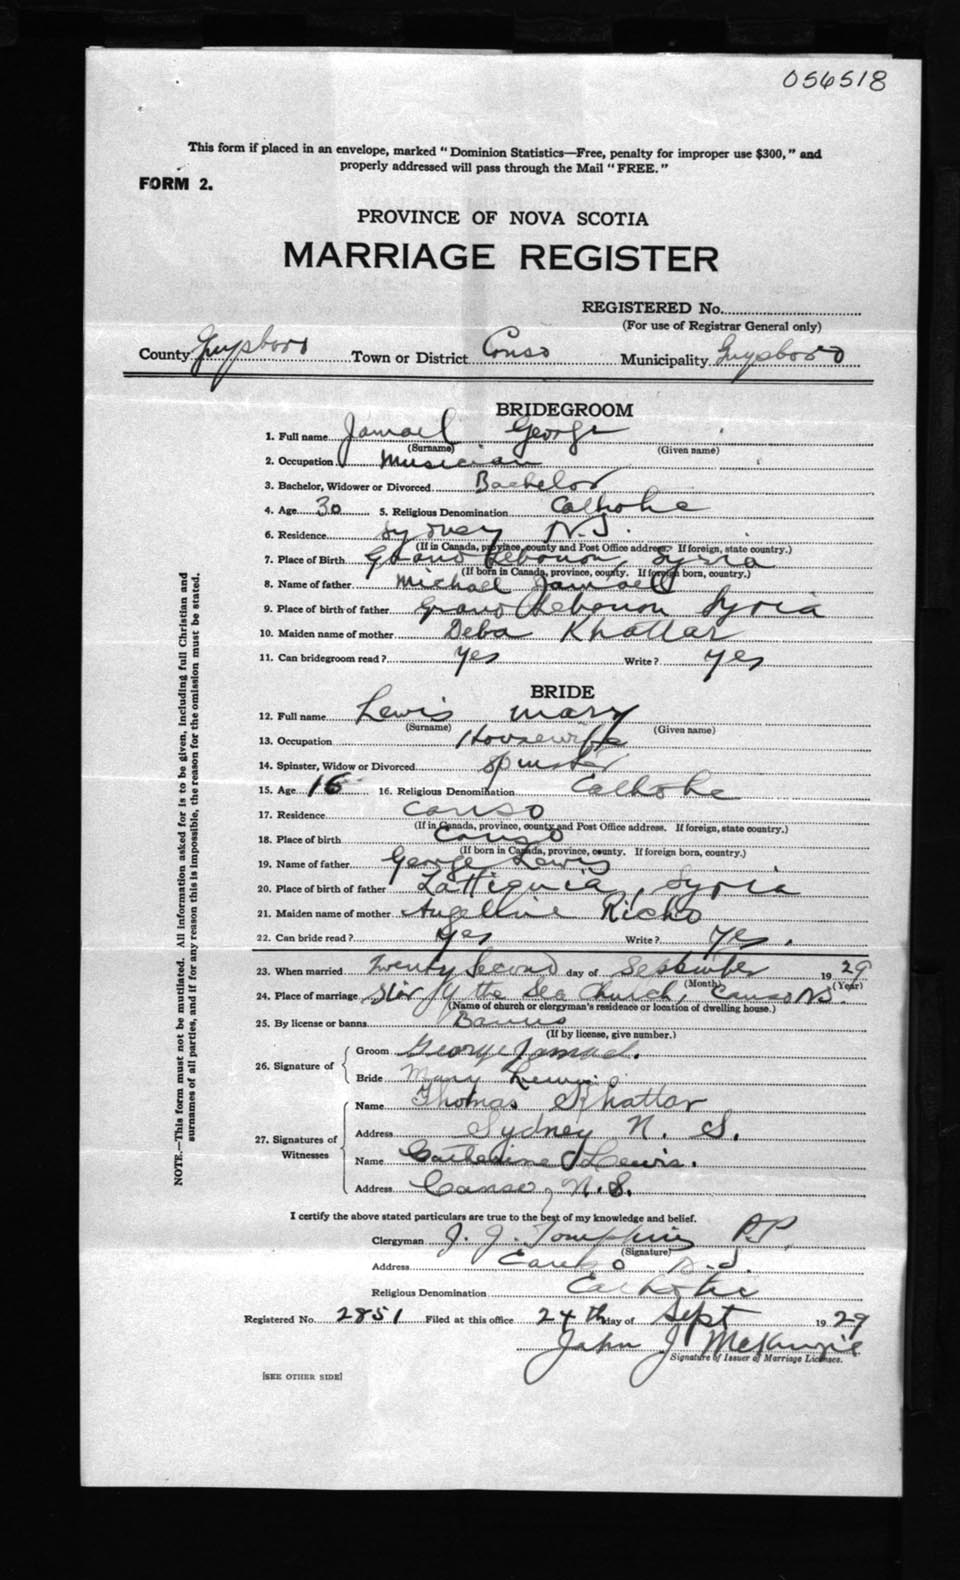 056518
This form if placed in an envelope, marked "Dominion Statistics—Free, penalty for improper use $300," and
properly addressed will pass through the Mail "FREE."
FORM 2.
PROVINCE OF NOVA SCOTIA
MARRIAGE REGISTER
REGISTERED No.
(For use of Registrar General only)
County Guysboro Town or District Canso Municipality Guysboro
BRIDEGROOM
1. Full name Jamael George
(Surname) (Given name)
2. Occupation Musician
3. Bachelor, Widower or Divorced Bachelor
4. Age 30 5. Religious Denomination Catholic
6. Residence Sydney N.S.
(If in Canada, province, county and Post Office address. If foreign, state country.)
7. Place of Birth Grand Lebanon, Syria
(If born in Canada, province, county. If foreign born, country.)
8. Name of father Michael Jamael
9. Place of birth of father Grand Lebanon Syria
10. Maiden name of mother Deba Khattar
11. Can bridegroom read? Yes Write? Yes
BRIDE
12. Full name Lewis Mary
(Surname) (Given name)
13. Occupation Housewife
14. Spinster, Widow or Divorced Spinster
15. Age 16 16. Religious Denomination Catholic
17. Residence Canso
(If in Canada, province, county and Post Office address. If foreign, state country.)
18. Place of birth Canso
(If born in Canada, province, county. If foreign born, country.)
19. Name of father George Lewis
20. Place of birth of father Lattiquia, Syria
21. Maiden name of mother Angelline Richo
22. Can bride read? Yes Write? Yes.
23. When married Twenty Second day of September 1929
(Month) (Year)
24. Place of marriage Star of the Sea Church, Canso N.S.
(Name of church or clergyman's residence or location of dwelling house.)
25. By license or banns Banns
(If by license, give number.)
26. Signature of
Groom George Jamael.
Bride Mary Lewis
27. Signatures of Witnesses
Name Thomas Khattar
Address Sydney N. S.
Name Catherine Lewis.
Address Canso, N.S.
I certify the above stated particulars are true to the best of my knowledge and belief.
Clergyman J. J. Tompkins P.P.
(Signature)
Address Canso N.S.
Religious Denomination Catholic
Registered No. 2851 Filed at this office 24th day of Sept 1929
John J McKenzie
Signature of Issuer of Marriage Licenses.
[SEE OTHER SIDE]
NOTE.—This form must not be mutilated. All information asked for is to be given, including full Christian and
surnames of all parties, and if for any reason this is impossible, the reason for the omission must be stated.